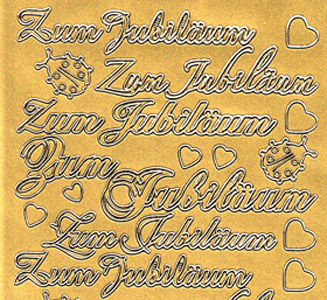 Zum Jubiläum
Zum Jubiläum
Zum Jubiläum
Zum
Jubiläum
Zum Jubiläum
Zum Jubiläum